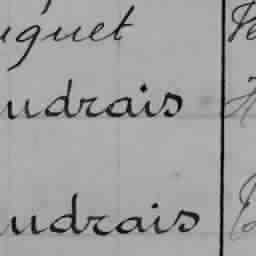 uguet
udrais
udrais